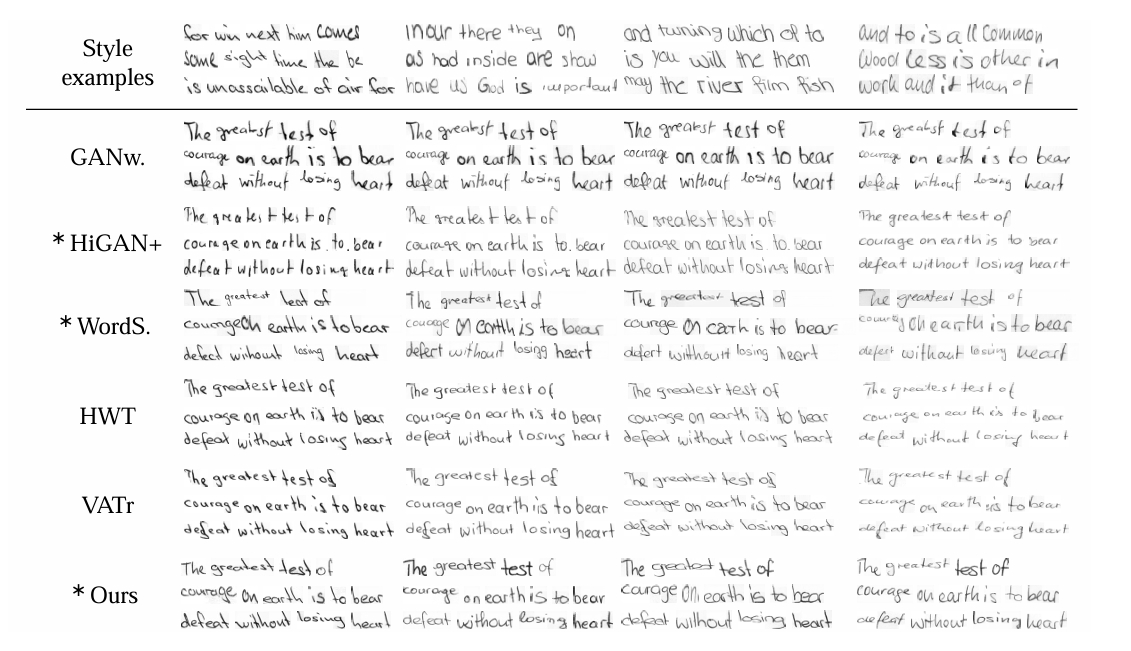 Style examples
for win next him comes
some sight time the be
is unassailable of air for
in our there they on
as had inside are show
have us God is important
and turning which of to
is you will the them
may the river film fish
and to is all Common
Wood Less is other in
work and it than of
GANw.
The greatest test of
courage on earth is to bear
defeat without losing heart
The greatest test of
courage on earth is to bear
defeat without losing heart
The greatest test of
courage on earth is to bear
defeat without losing heart
The greatest test of
courage on earth is to bear
defeat without losing heart
*HiGAN+
The greatest test of
courage on earth is to. bear
defeat without losing heart
The greatest test of
courage on earth is to. bear
defeat without losing heart
The greatest test of
courage on earth is to. bear
defeat without losing heart
The greatest test of
courage on earth is to bear
defeat without losing heart
*WordS.
The greatest test of
earth is to bear
losing heart
The greatest test of
is to bear
losing heart
The test of
is to bear
losing heart
The greatest test of
on earth is to bear
without losing heart
HWT
The greatest test of
courage on earth is to bear
defeat without losing heart
The greatest test of
courage on earth is to bear
defeat without losing heart
The greatest test of
courage on earth is to bear
defeat without losing heart
The greatest test of
courage on earth is to bear
defeat without losing heart
VATr
The greatest test of
courage on earth is to bear
defeat without losing heart
The greatest test of
courage on earth iis to bear
defeat without losing heart
The greatest test of
courage on earth is to bear
defeat without losing heart
The greatest test of
courage on earth is to bear
defeat without losing heart
*Ours
The greatest test of
courage on earth is to bear
defeat without losing heart
The greatest test of
courage on earth is to bear
defeat without losing heart
The test of
courage on earth is to bear
defeat without losing heart
The greatest test of
courage on earth is to bear
defeat without losing heart